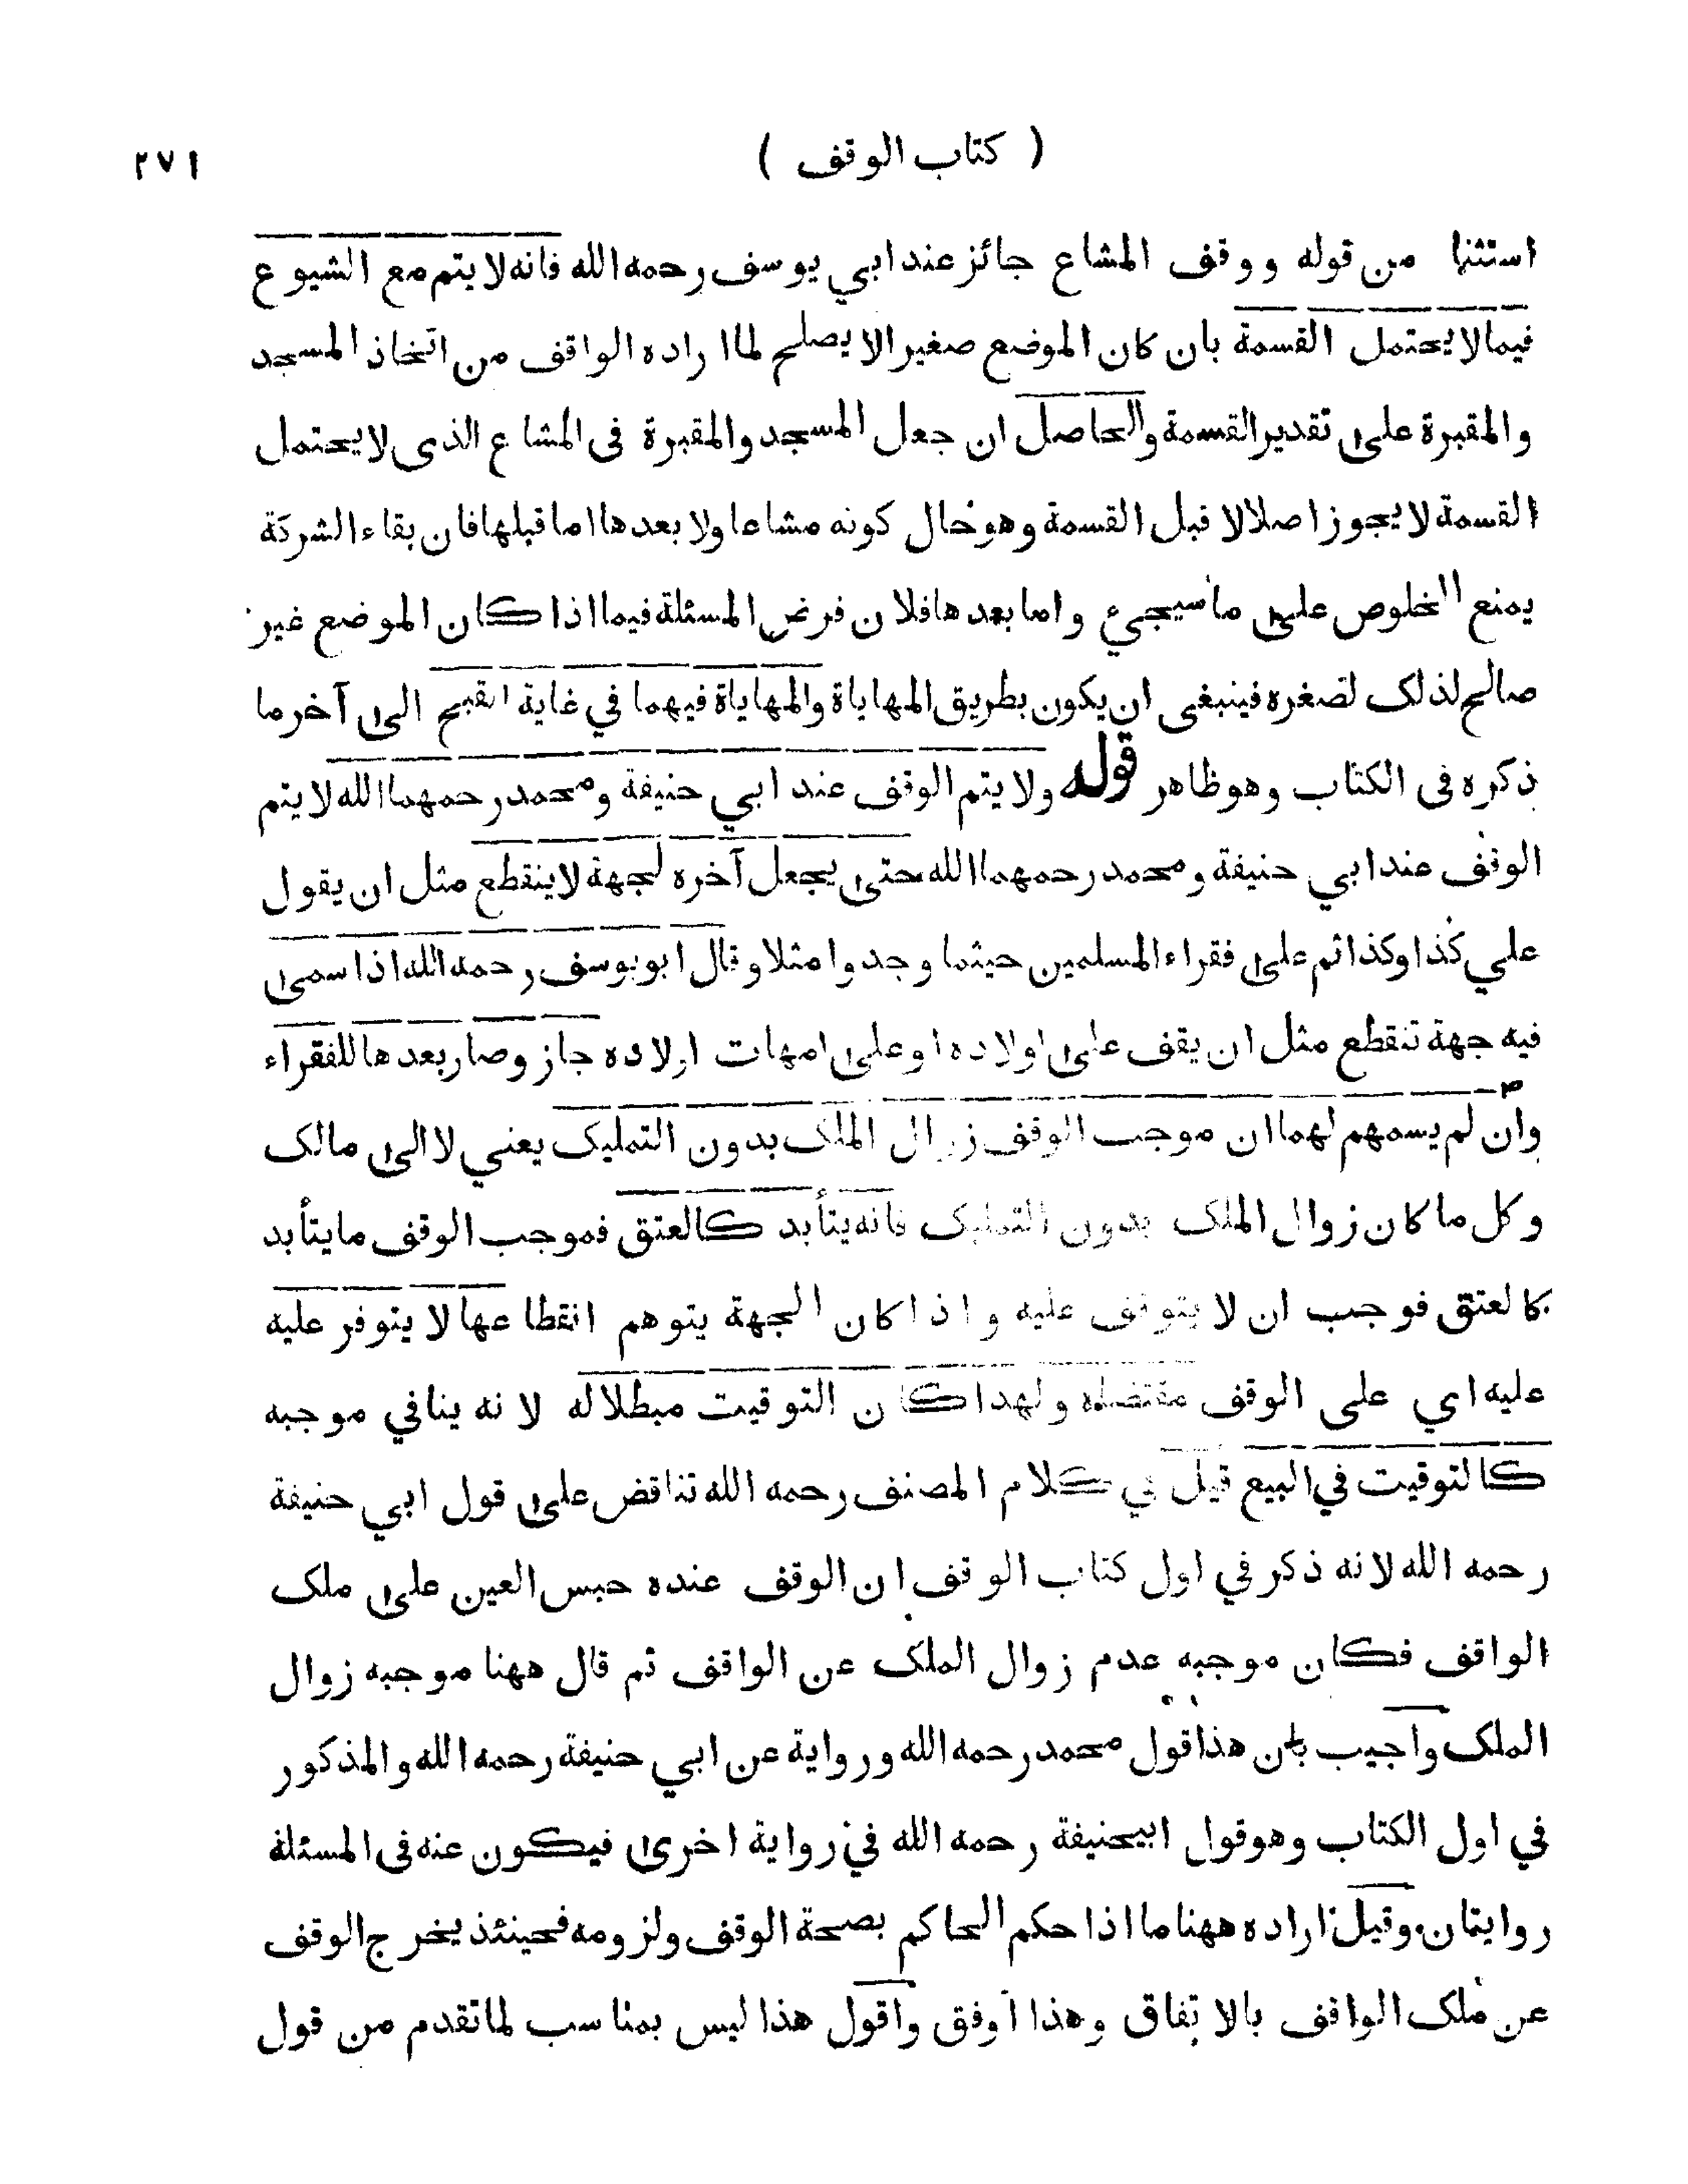 ( كتاب الوقف )
٢٧١
استثنا من قوله ووقف المشاع جائز عند ابي يوسف رحمه الله فانه لا يتم مع الشيوع
فيما لا يحتمل القسمة بان كان الموضع صغيرا لا يصلح لما اراده الواقف من اتخاذ المسجد
والمقبرة على تقدير القسمة والحاصل ان جعل المسجد والمقبرة فى المشاع الذى لا يحتمل
القسمة لا يجوز اصلا لا قبل القسمة وهو حال كونه مشاعا ولا بعدها اما قبلها فان بقاء الشركة
يمنع الخلوص على ما سيجيء واما بعدها فلان فرض المسئلة فيما اذا كان الموضع غير
صالح لذلك لصغره فينبغى ان يكون بطريق المهاياة والمهاياة فيهما في غاية القبح الى آخر ما
ذكره فى الكتاب وهو ظاهر قوله ولا يتم الوقف عند ابي حنيفة ومحمد رحمهما الله لا يتم
الوقف عند ابي حنيفة ومحمد رحمهما الله حتى يجعل آخره لجهة لا ينقطع مثل ان يقول
علي كذا وكذا ثم على فقراء المسلمين حيثما وجدوا مثلا وقال ابو يوسف رحمه الله اذا سمى
فيه جهة تنقطع مثل ان يقف على اولاده او على امهات اولاده جاز وصار بعدها للفقراء
وان لم يسمهم لهما ان موجب الوقف زوال الملك بدون التمليك يعني لا الى مالك
وكل ما كان زوال الملك بدون التمليك فانه يتأبد كالعتق فموجب الوقف ما يتأبد
كالعتق فوجب ان لا يتوقف عليه واذا كان الجهة يتوهم انقطاعها لا يتوفر عليه
عليه اي على الوقف مقتضاه ولهذا كان التوقيت مبطلا له لانه ينافي موجبه
كالتوقيت في البيع قيل في كلام المصنف رحمه الله تناقض على قول ابي حنيفة
رحمه الله لانه ذكر في اول كتاب الوقف ان الوقف عنده حبس العين على ملك
الواقف فكان موجبه عدم زوال الملك عن الواقف ثم قال ههنا موجبه زوال
الملك واجيب بان هذا قول محمد رحمه الله ورواية عن ابي حنيفة رحمه الله والمذكور
في اول الكتاب وهو قول ابيحنيفة رحمه الله في رواية اخرى فيكون عنه فى المسئلة
روايتان وقيل اراده ههنا ما اذا حكم الحاكم بصحة الوقف ولزومه فحينئذ يخرج الوقف
عن ملك الواقف بالاتفاق وهذا اوفق واقول هذا ليس بمناسب لما تقدم من قول